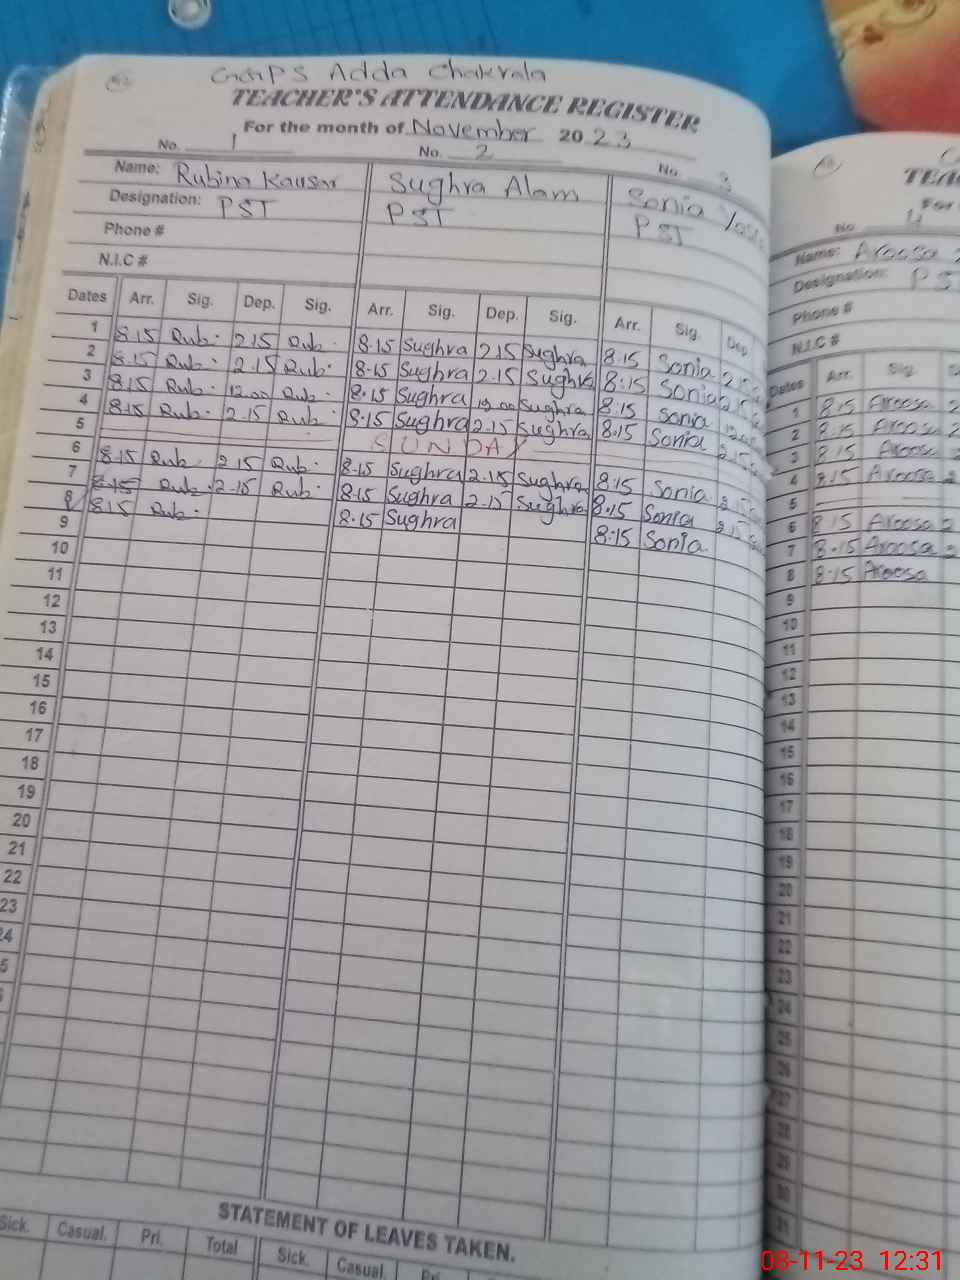 GGPS Adda Chakrala
TEACHER'S ATTENDANCE REGISTER
For the month of November 2023
No. 1 No. 2 No. 3
Name: Rubina Kausar Sughra Alam Sonia
Designation: PST PST PST
Phone #
N.I.C #
Dates Arr. Sig. Dep. Sig. Arr. Sig. Dep. Sig. Arr. Sig. Dep
1 8.15 Rub. 2.15 Rub. 8.15 Sughra 2.15 Sughra 8.15 Sonia
2 8.15 Rub. 2.15 Rub. 8.15 Sughra 2.15 Sughra 8:15 Sonia
3 8.15 Rub. 12.00 Rub. 8.15 Sughra 12.00 Sughra 8:15 Sonia
4 8.15 Rub. 2.15 Rub. 8:15 Sughra 2.15 Sughra 8.15 Sonia
5 SUNDAY
6 8.15 Rub. 2.15 Rub. 8.15 Sughra 2.15 Sughra 8:15 Sonia
7 8.15 Rub. 2.15 Rub. 8.15 Sughra 2.15 Sughra 8.15 Sonia
8 8.15 Rub. 8.15 Sughra 8:15 Sonia
9
10
11
12
13
14
15
16
17
18
19
20
21
22
23
24
5
STATEMENT OF LEAVES TAKEN.
Sick. Casual. Pri. Total Sick. Casual. Pri.
TEA
For
No 4
Name: Aroosa
Designation: PST
Phone #
N.I.C #
Dates Arr. Sig.
1 8.15 Aroosa 2
2 8.15 Aroosa 2
3 8.15 Aroosa
4 8.15 Aroosa 2
5
6 8.15 Aroosa 2
7 8.15 Aroosa 2
8 8.15 Aroosa
9
10
11
12
13
14
15
16
17
18
19
20
21
22
23
24
25
26
27
28
29
30
31
08-11-23 12:31